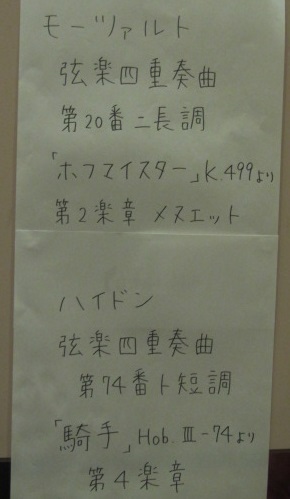 モーツァルト
弦楽四重奏曲
第20番ニ長調
「ホフマイスター」K.499より
第2楽章 メヌエット
ハイドン
弦楽四重奏曲
第74番ト短調
「騎手」Hob.Ⅲ-74より
第4楽章